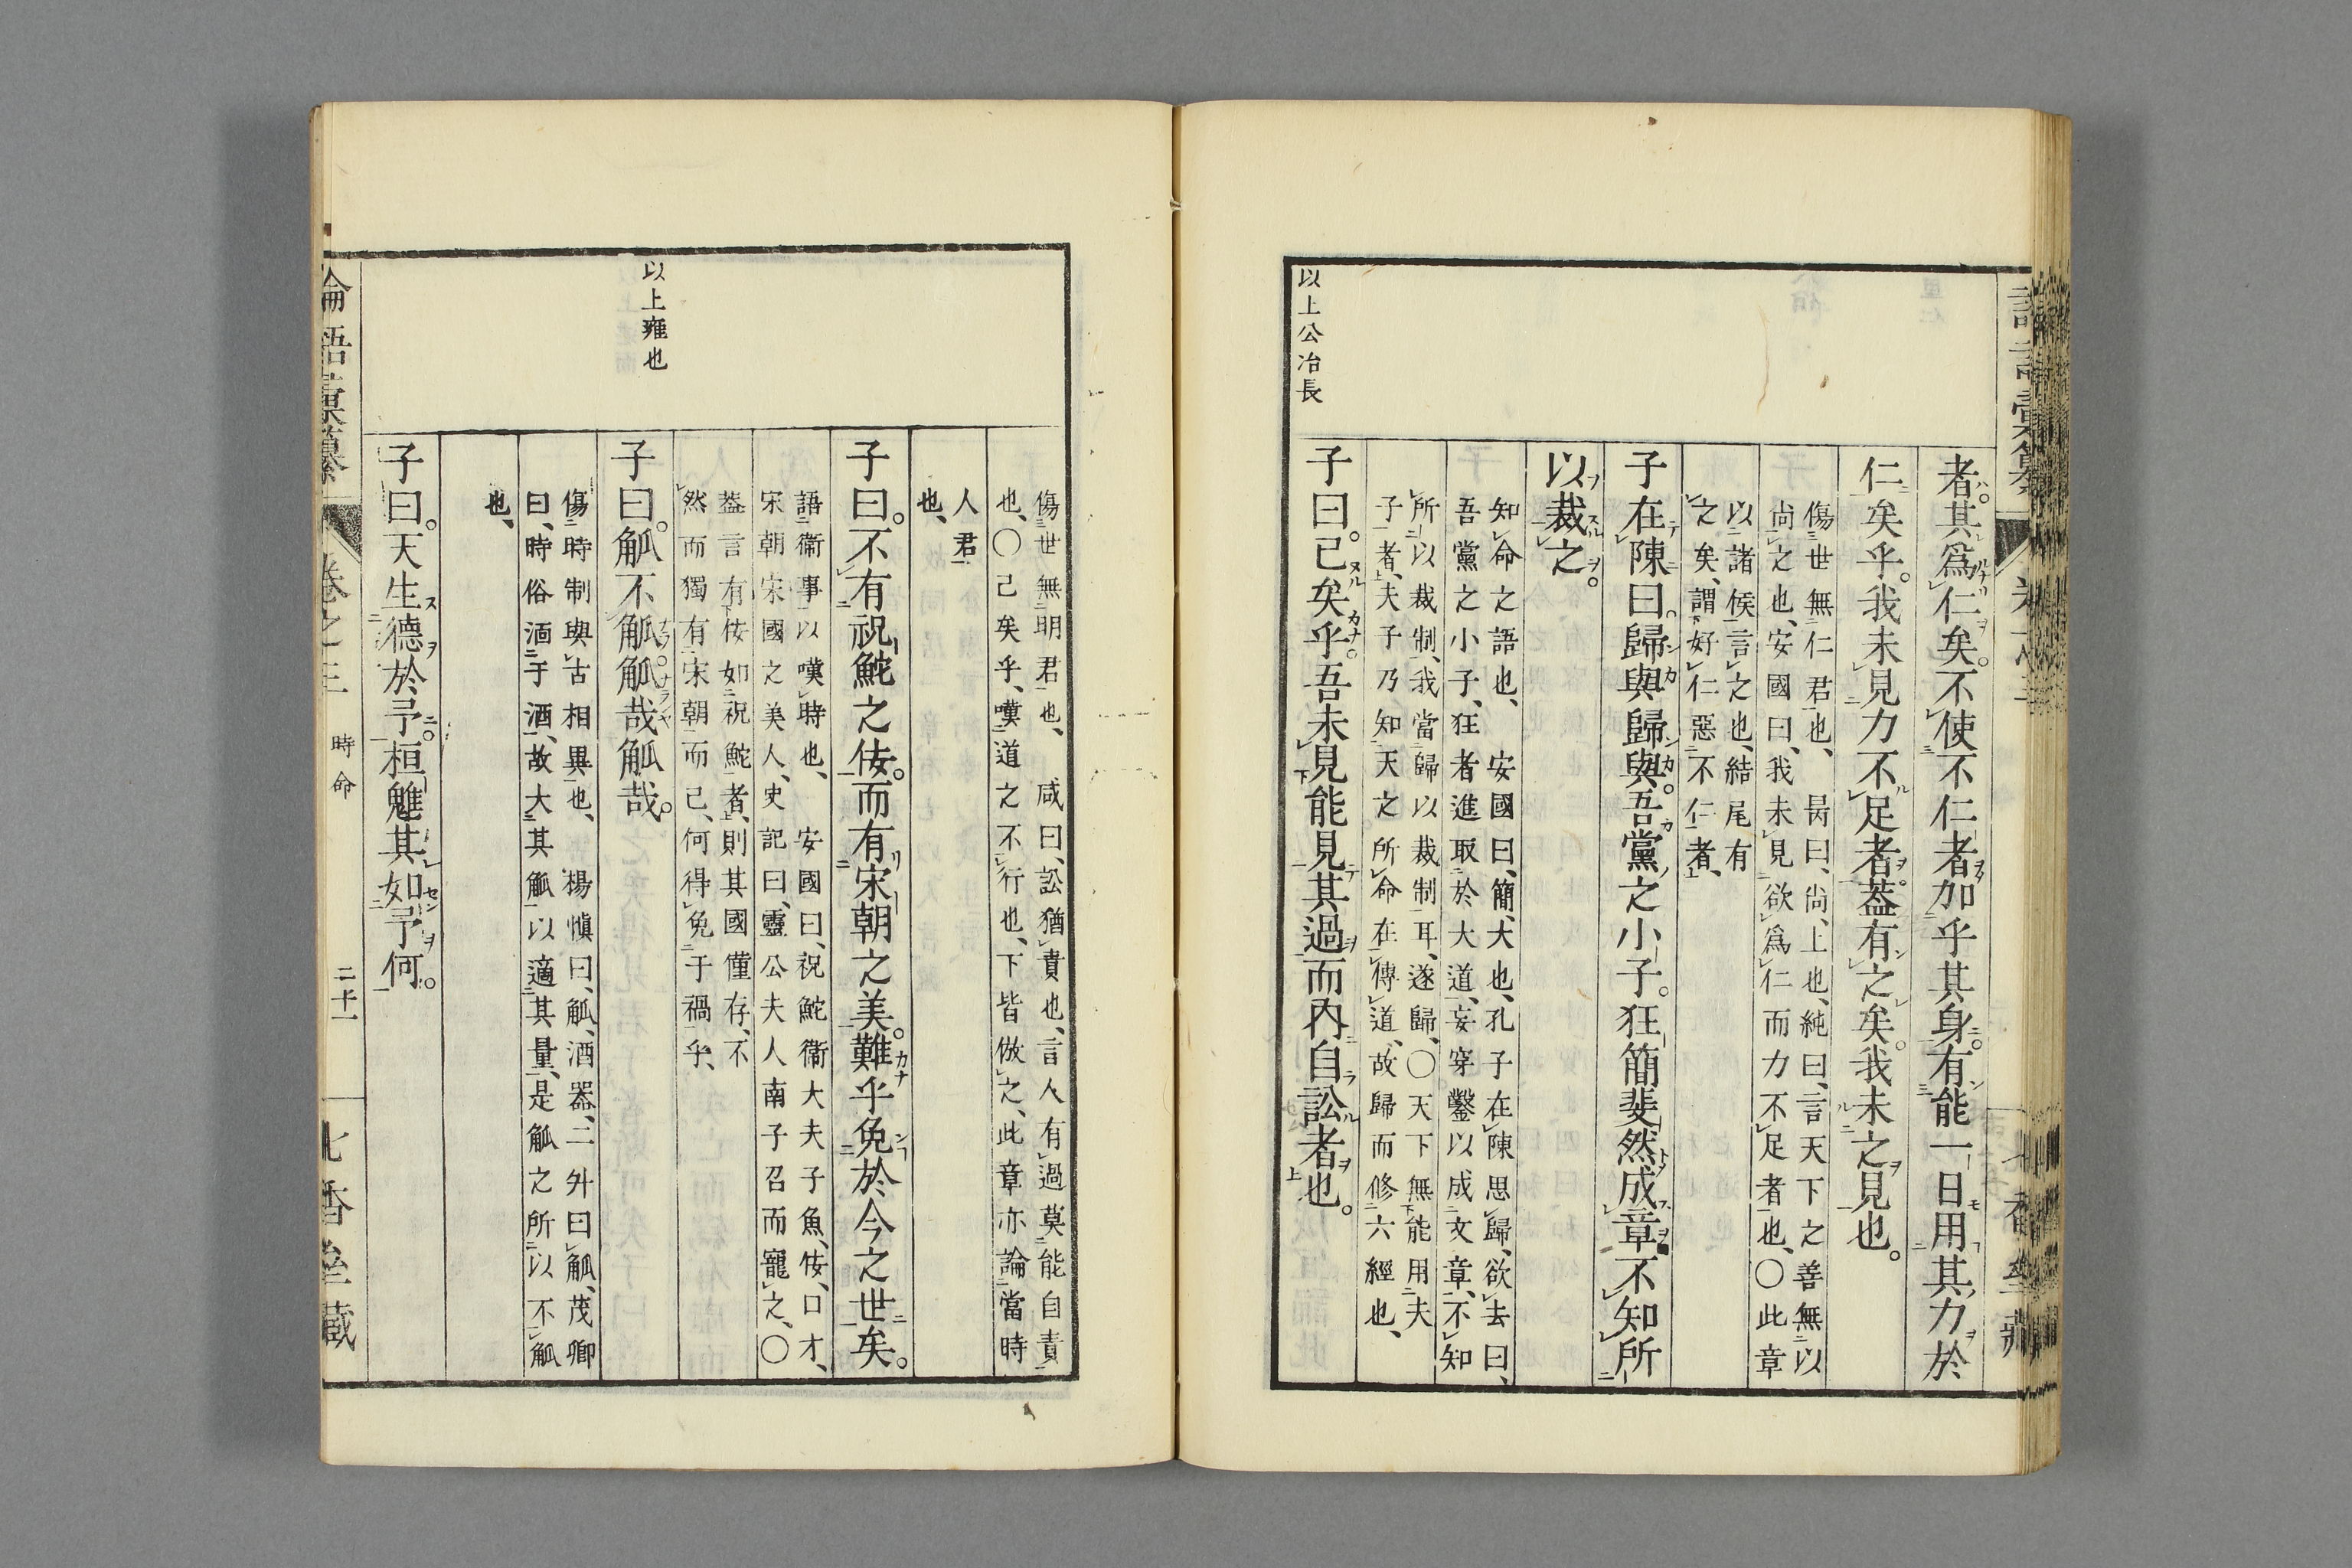 者。其爲仁矣。不使不仁者加乎其身。有能一日用其力於
仁矣乎。我未見力不足者。葢有之矣。我未之見也。
傷世無仁君也、 昺曰、尚、上也、純曰、言天下之善無以
尚之也、安國曰、我未見欲爲仁而力不足者也、〇此章
以諸侯言之也、結尾有
之矣、謂好仁惡不仁者、
子在陳曰。歸與歸與。吾黨之小子。狂簡斐然成章。不知所
以裁之。
知命之語也、 安國曰、簡、大也、孔子在陳思歸、欲去曰、
吾黨之小子、狂者進取於大道、妄穿鑿以成文章、不知
所以裁制、我當歸以裁制耳、遂歸、〇天下無能用夫
子者、夫子乃知天之所命在傳道、故歸而修六經也、
以上公冶長
子曰。已矣乎。吾未見能見其過而内自訟者也。
傷世無明君也、 咸曰、訟猶責也、言人有過莫能自責
也、〇已矣乎、嘆道之不行也、下皆倣之、此章亦論當時
人君
也、
子曰。不有祝鮀之佞。而有宋朝之美。難乎免於今之世矣。
語衞事以嘆時也、 安國曰、祝鮀衞大夫子魚、佞、口才、
宋朝宋國之美人、史記曰、靈公夫人南子召而寵之、〇
葢言有佞如祝鮀者、則其國僅存、不
然而獨有宋朝而已、何得免于禍乎、
以上雍也
子曰。觚不觚。觚哉觚哉。
傷時制與古相異也、 楊愼曰、觚、酒器、二外曰觚、茂卿
曰、時俗湎于酒、故大其觚以適其量、是觚之所以不觚
也、
子曰。天生德於予。桓魋其如予何。
論語彙纂 卷之三 時命 二十一 七香堂藏